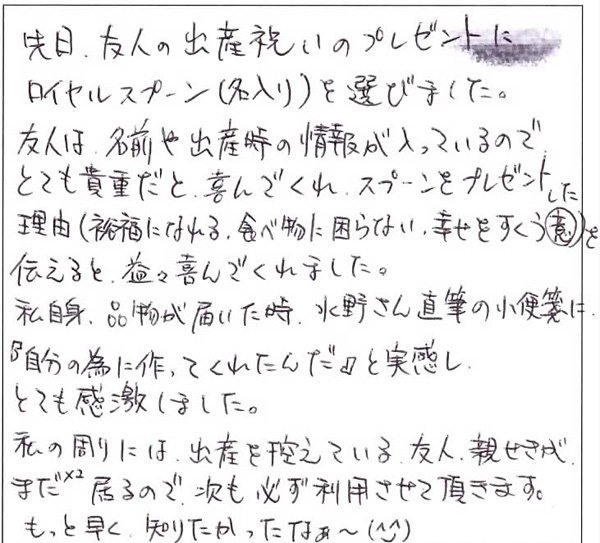 先日、友人の出産祝いのプレゼントに
ロイヤルスプーン(名入り)を選びました。
友人は、名前や出産時の情報が入っているので、
とても貴重だと、喜んでくれ、スプーンをプレゼントした
理由(裕福になれる、食べ物に困らない、幸せをすくう意)を
伝えると、益々喜んでくれました。
私自身、品物が届いた時、水野さん直筆の小便箋に、
『自分の為に作ってくれたんだ』と実感し、
とても感激しました。
私の周りには、出産を控えている、友人、親せきが、
まだ×2居るので、次も必ず利用させて頂きます。
もっと早く、知りたかったなぁ〜(^^)